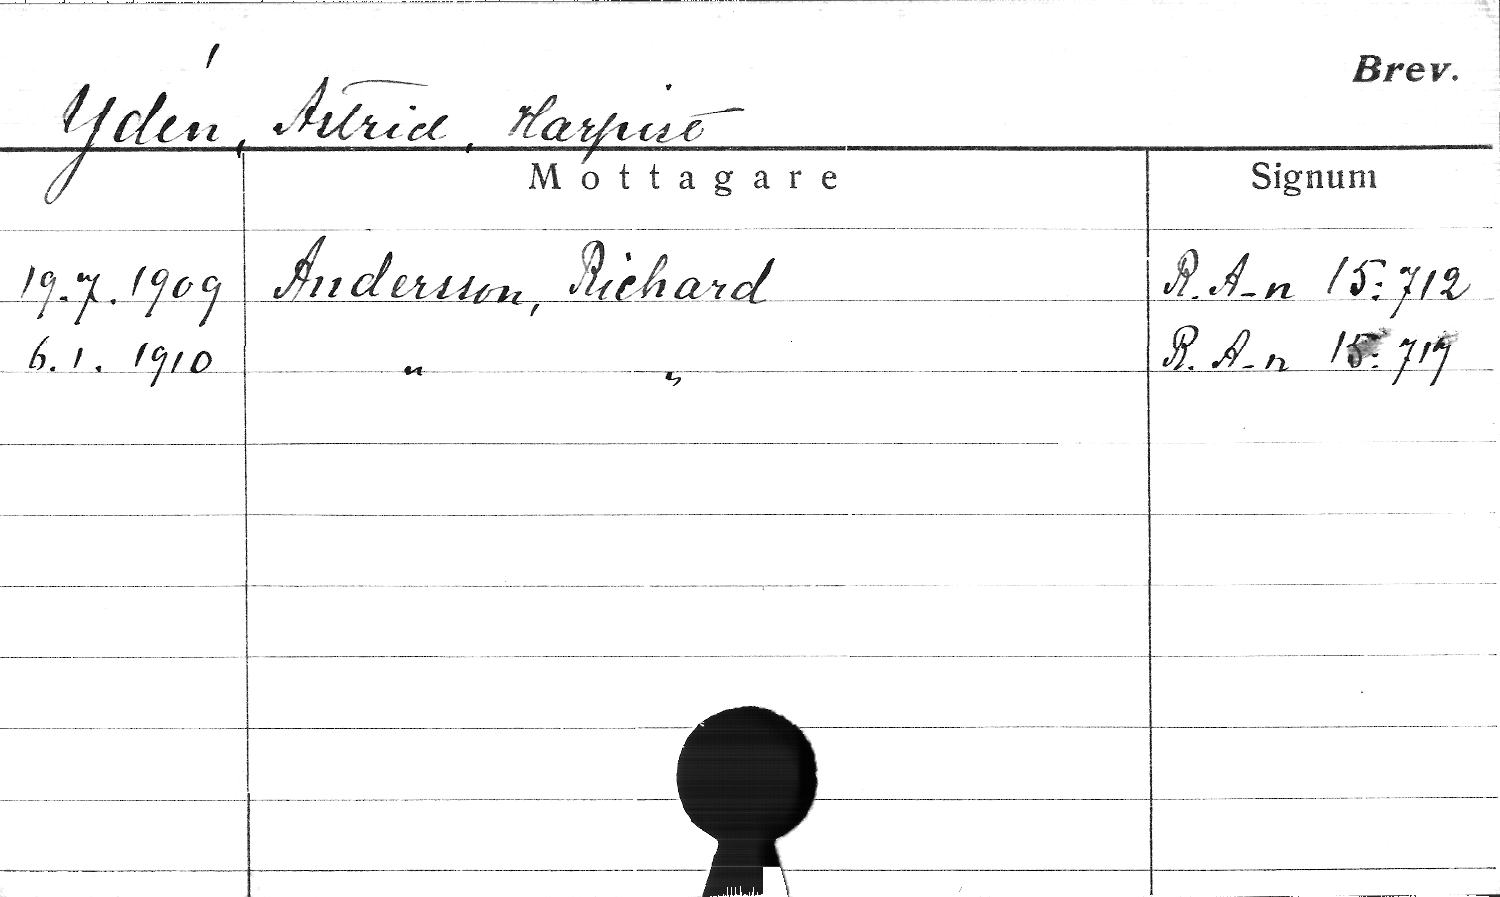 Brev.
Ydén, Astrid, Harpist
Mottagare Signum
19.7.1909 Andersson, Richard R. A-n 15:712
6.1.1910 " " R. A-n 15:717